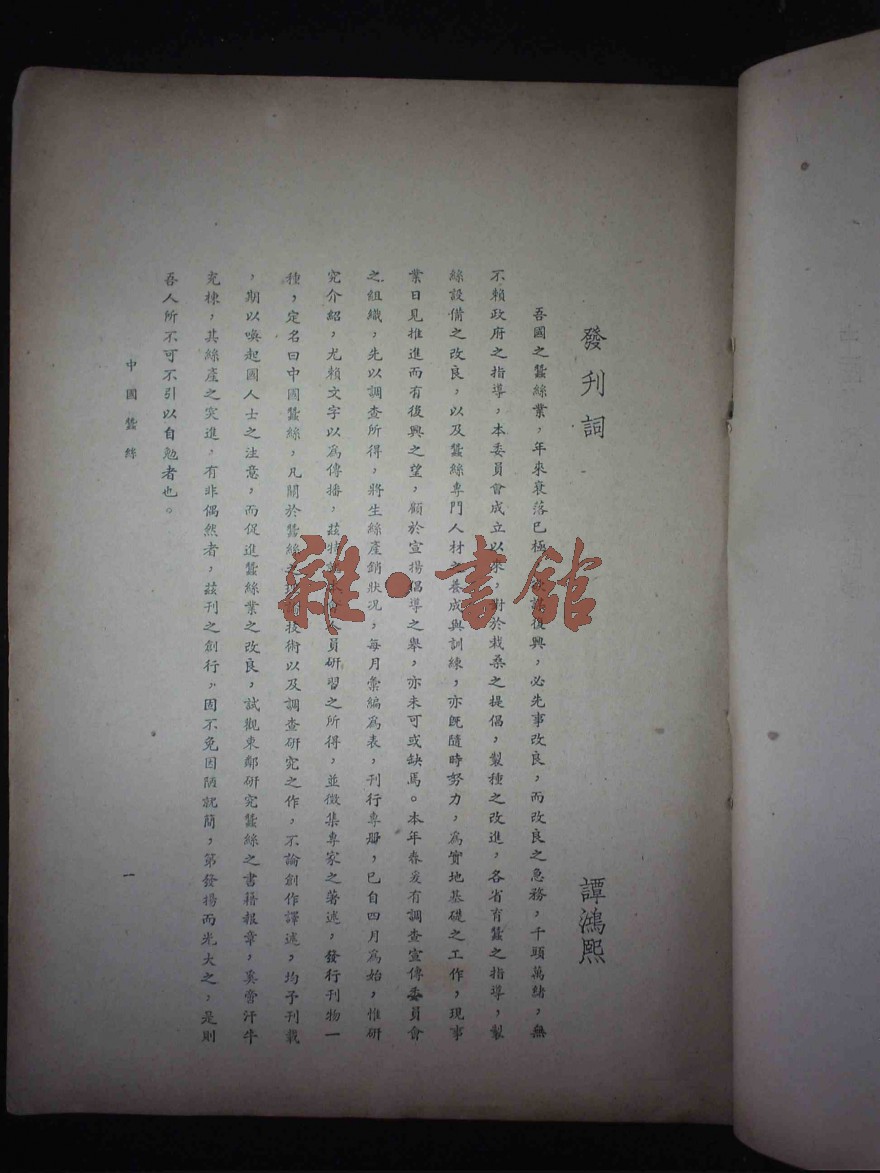 發刊詞
譚鴻熙
吾國之蠶絲業，年來衰落已極，復興，必先事改良，而改良之急務，千頭萬緒，無
不賴政府之指導，本委員會成立以來，對於栽桑之提倡，製種之改進，各省育蠶之指導，製
絲設備之改良，以及蠶絲專門人材之養成與訓練，亦既隨時努力，為實地基礎之工作，現事
業日見推進而有復興之望，顧於宣揚倡導之舉，亦未可或缺焉。本年春爰有調查宣傳委員會
之組織，先以調查所得，將生絲產銷狀況，每月彙編為表，刊行專冊，已自四月為始，惟研
究介紹，尤賴文字以為傳播，茲特員研習之所得，並徵集專家之著述，發行刊物一
種，定名曰中國蠶絲，凡關於蠶絲之技術以及調查研究之作，不論創作譯述，均予刊載
，期以喚起國人士之注意，而促進蠶絲業之改良，試觀東鄰研究蠶絲之書籍報章，奚啻汗牛
充棟，其絲產之突進，有非偶然者，茲刊之創行，固不免因陋就簡，第發揚而光大之，是則
吾人所不可不引以自勉者也。
中國蠶絲
一
雜·書館